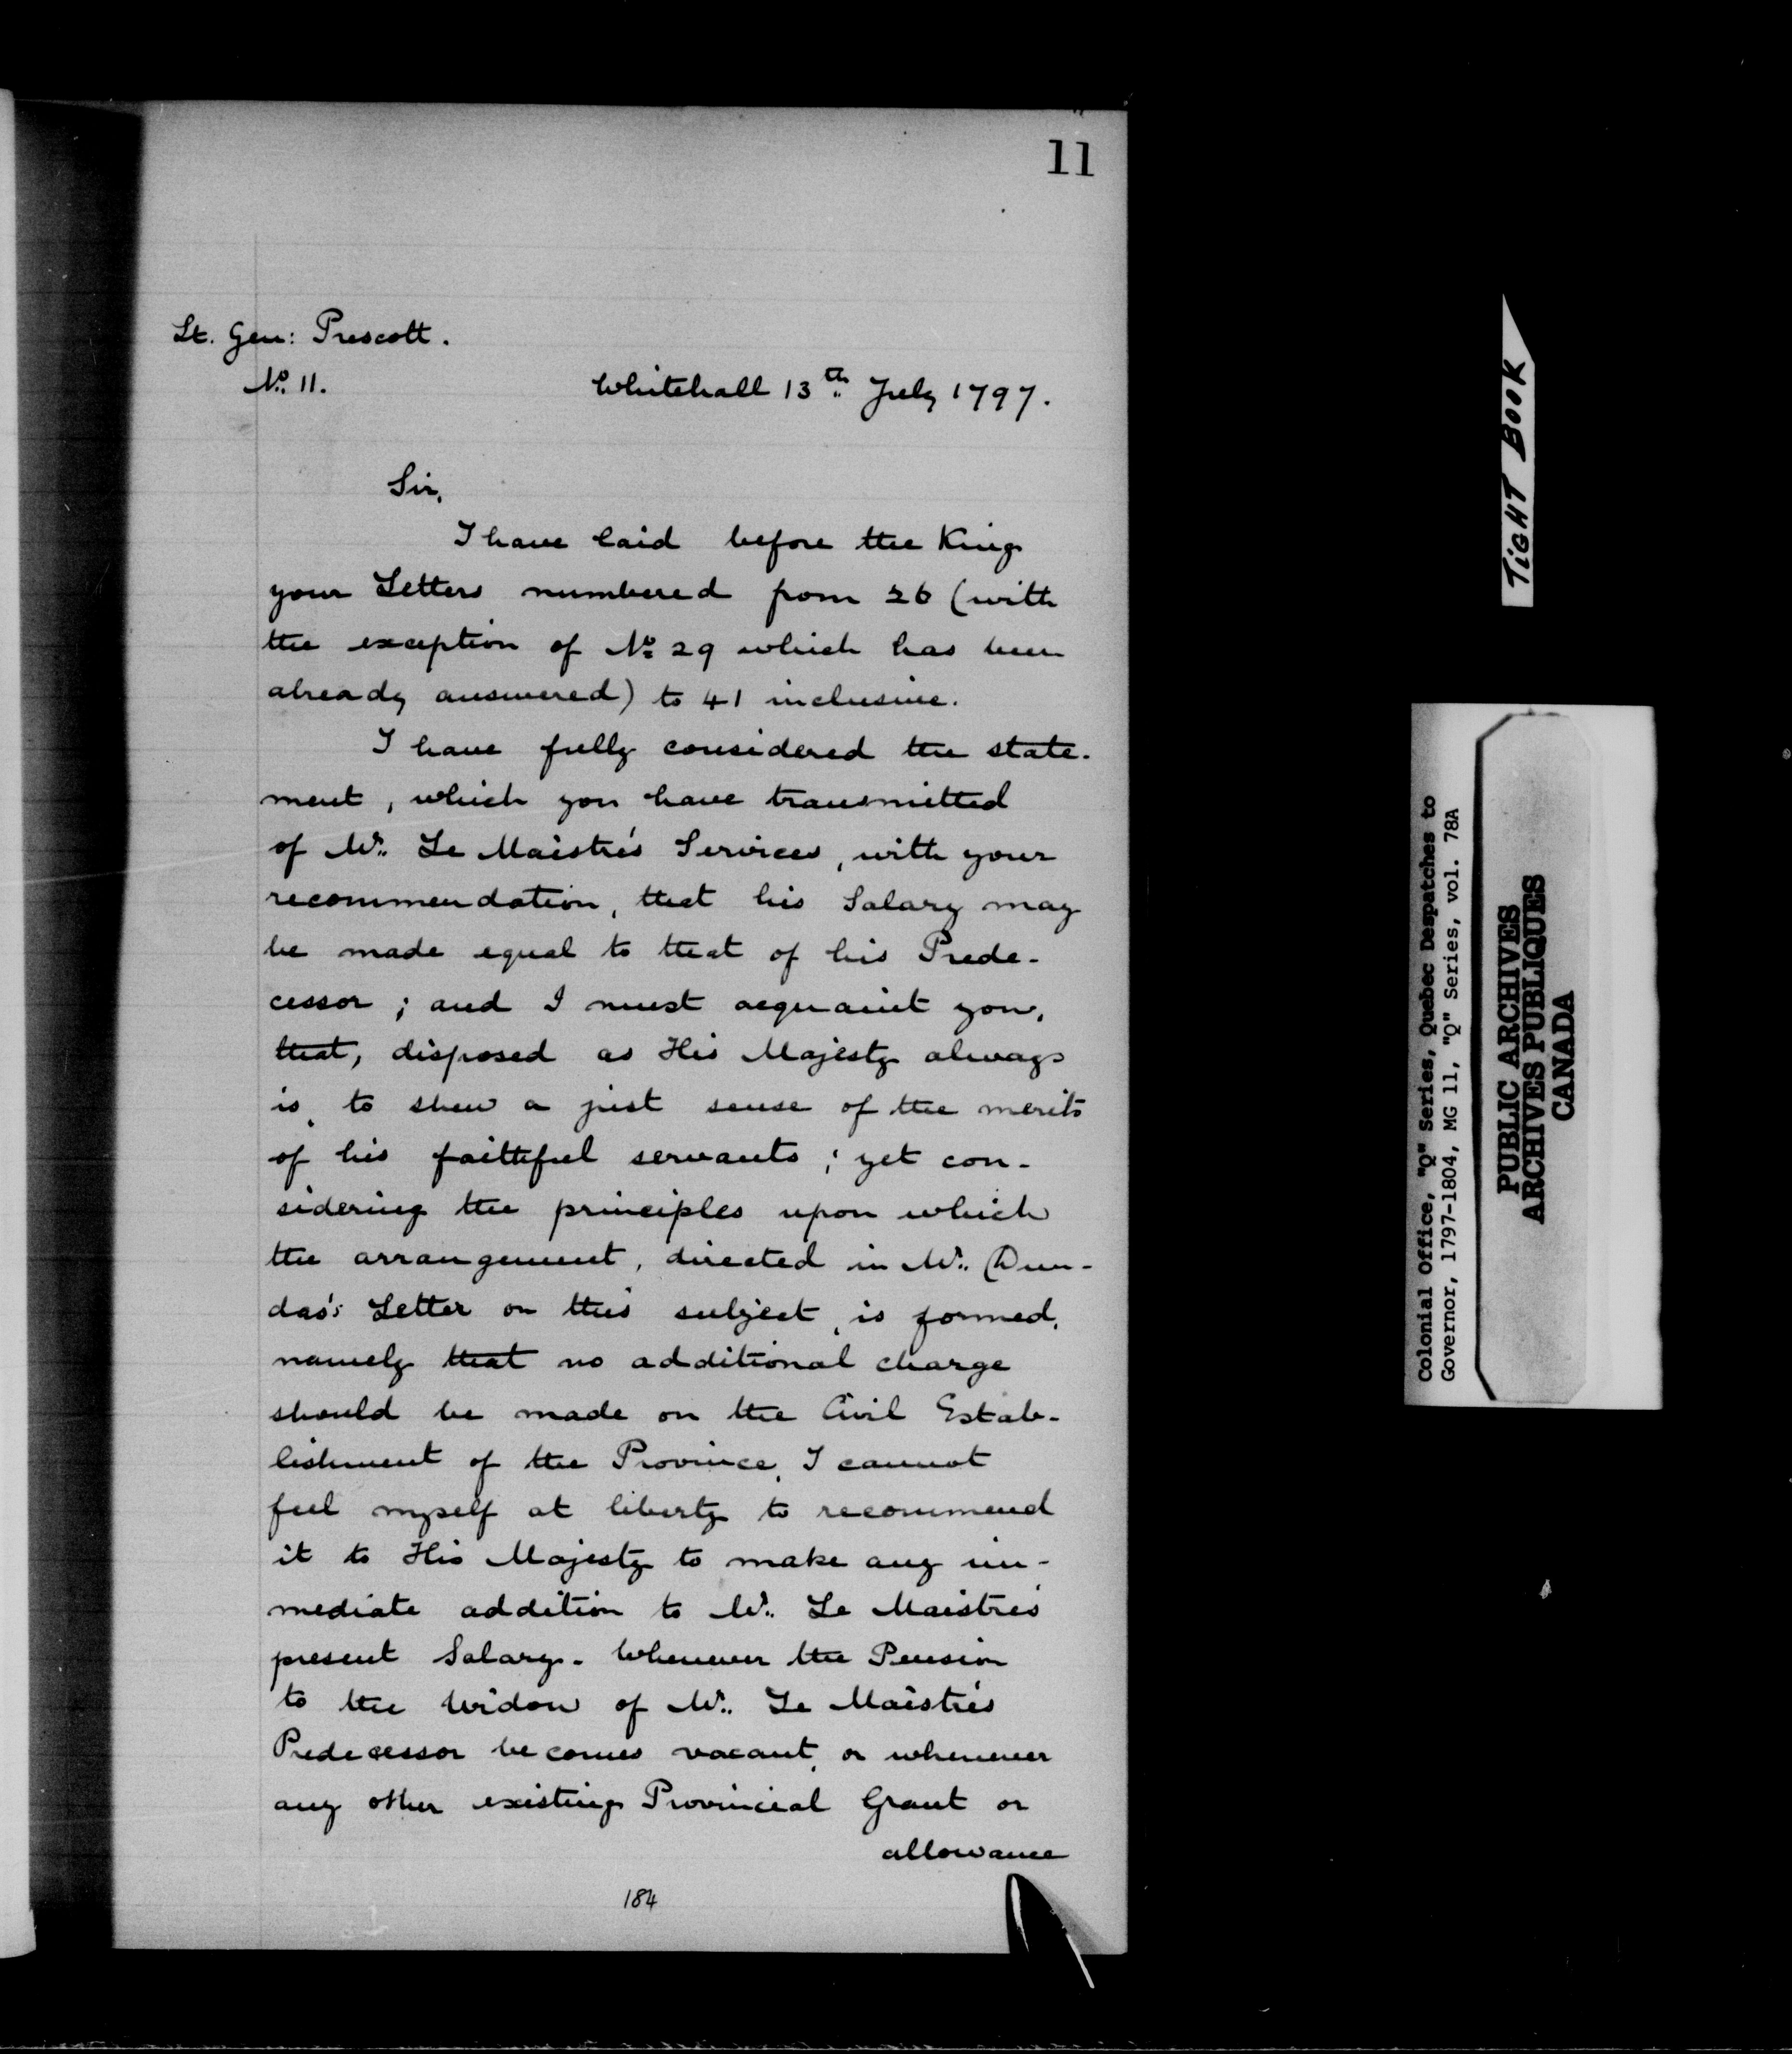 11
Lt. Gen: Prescott.
No. 11.
Whitehall 13th July 1797.
Sir,
I have laid before the King
your Letters numbered from 26 (with
the exception of No 29 which has been
already answered) to 41 inclusive.
I have fully considered the state-
ment, which you have transmitted
of Mr. Le Maistre's Services, with your
recommendation, that his Salary may
be made equal to that of his Prede-
cessor; and I must acquaint you,
that, disposed as His Majesty always
is, to shew a just sense of the merits
of his faithful servants; yet con-
sidering the principles upon which
the arrangement, directed in Mr. Dun-
das's Letter on this subject, is formed,
namely that no additional charge
should be made on the Civil Estab-
lishment of the Province, I cannot
feel myself at liberty to recommend
it to His Majesty to make any im-
mediate addition to Mr. Le Maistre's
present Salary. Whenever the Pension
to the Widow of Mr. Le Maistre's
Predecessor becomes vacant, or whenever
any other existing Provincial Grant or
allowance
184
TIGHT BOOK
Colonial Office, "Q" Series, Quebec Despatches to
Governor, 1797-1804, MG 11, "Q" Series, vol. 78A
PUBLIC ARCHIVES
ARCHIVES PUBLIQUES
CANADA